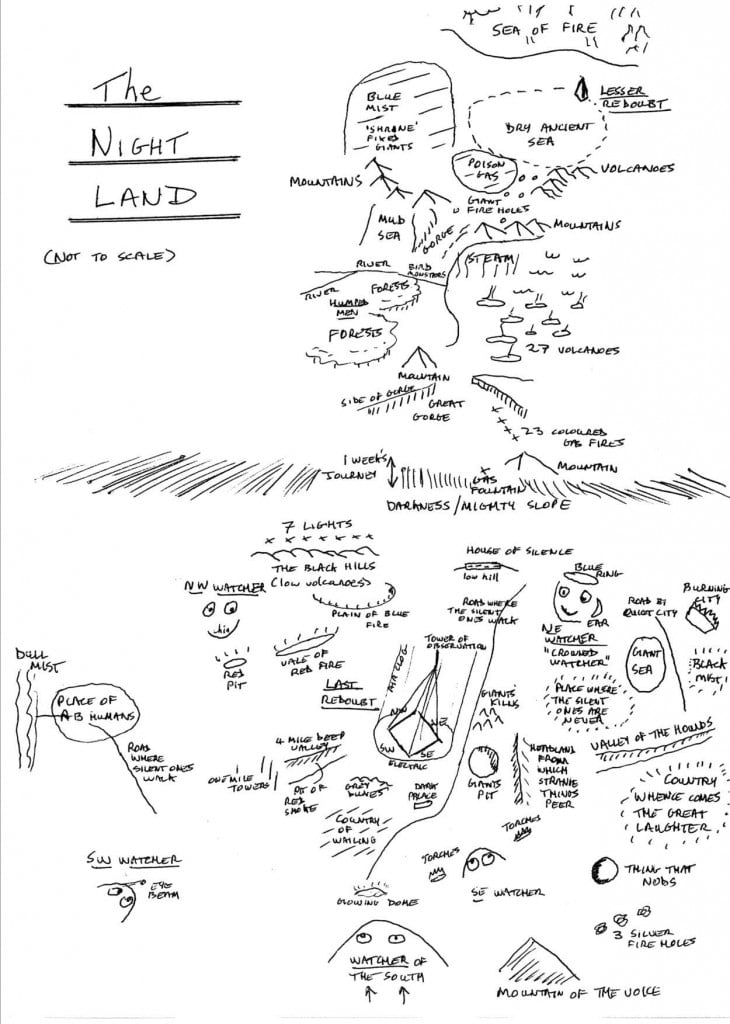 The
NIGHT
LAND
(NOT TO SCALE)
SEA OF FIRE
LESSER
REDOUBT
BLUE
MIST
'SHRINE'
FIXED
GIANTS
DRY ANCIENT
SEA
POISON
GAS
VOLCANOES
MOUNTAINS
GIANT
FIRE HOLES
MUD
SEA
GORGE
MOUNTAINS
RIVER
BIRD
MONSTERS
STEAM
RIVER
FORESTS
HUMPED
MEN
FORESTS
27 VOLCANOES
MOUNTAIN
SIDE OF GORGE
GREAT
GORGE
23 COLOURED
GAS FIRES
1 WEEK'S
JOURNEY
GAS
FOUNTAIN
MOUNTAIN
DARKNESS/MIGHTY SLOPE
7 LIGHTS
THE BLACK HILLS
(low volcanoes)
HOUSE OF SILENCE
low hill
NW WATCHER
chin
PLAIN OF BLUE
FIRE
ROAD WHERE
THE SILENT
ONES WALK
BLUE
RING
EAR
NE
WATCHER
"CROWNED
WATCHER"
ROAD BY
QUIET CITY
BURNING
CITY
GIANT
SEA
BLACK
MIST
RED
PIT
VALE OF
RED FIRE
TOWER OF
OBSERVATION
AIR CLOG
LAST
REDOUBT
NW
NE
SW
SE
ELECTRIC
GIANTS'
KILNS
PLACE WHERE
THE SILENT
ONES ARE
NEVER
DULL
MIST
PLACE OF
AB HUMANS
ROAD
WHERE
SILENT ONES
WALK
4 MILE DEEP
VALLEY
ONE MILE
TOWERS
PIT OF
RED
SMOKE
GREY
DUNES
DARK
PALACE
GIANTS
PIT
HEADLAND
FROM
WHICH
STRANGE
THINGS
PEER
VALLEY OF THE HOUNDS
COUNTRY
WHENCE COMES
THE GREAT
LAUGHTER
COUNTRY
OF
WAILING
TORCHES
TORCHES
SW WATCHER
EYE
BEAM
GLOWING DOME
SE WATCHER
THING THAT
NODS
3 SILVER
FIRE HOLES
WATCHER OF
THE SOUTH
MOUNTAIN OF THE VOICE